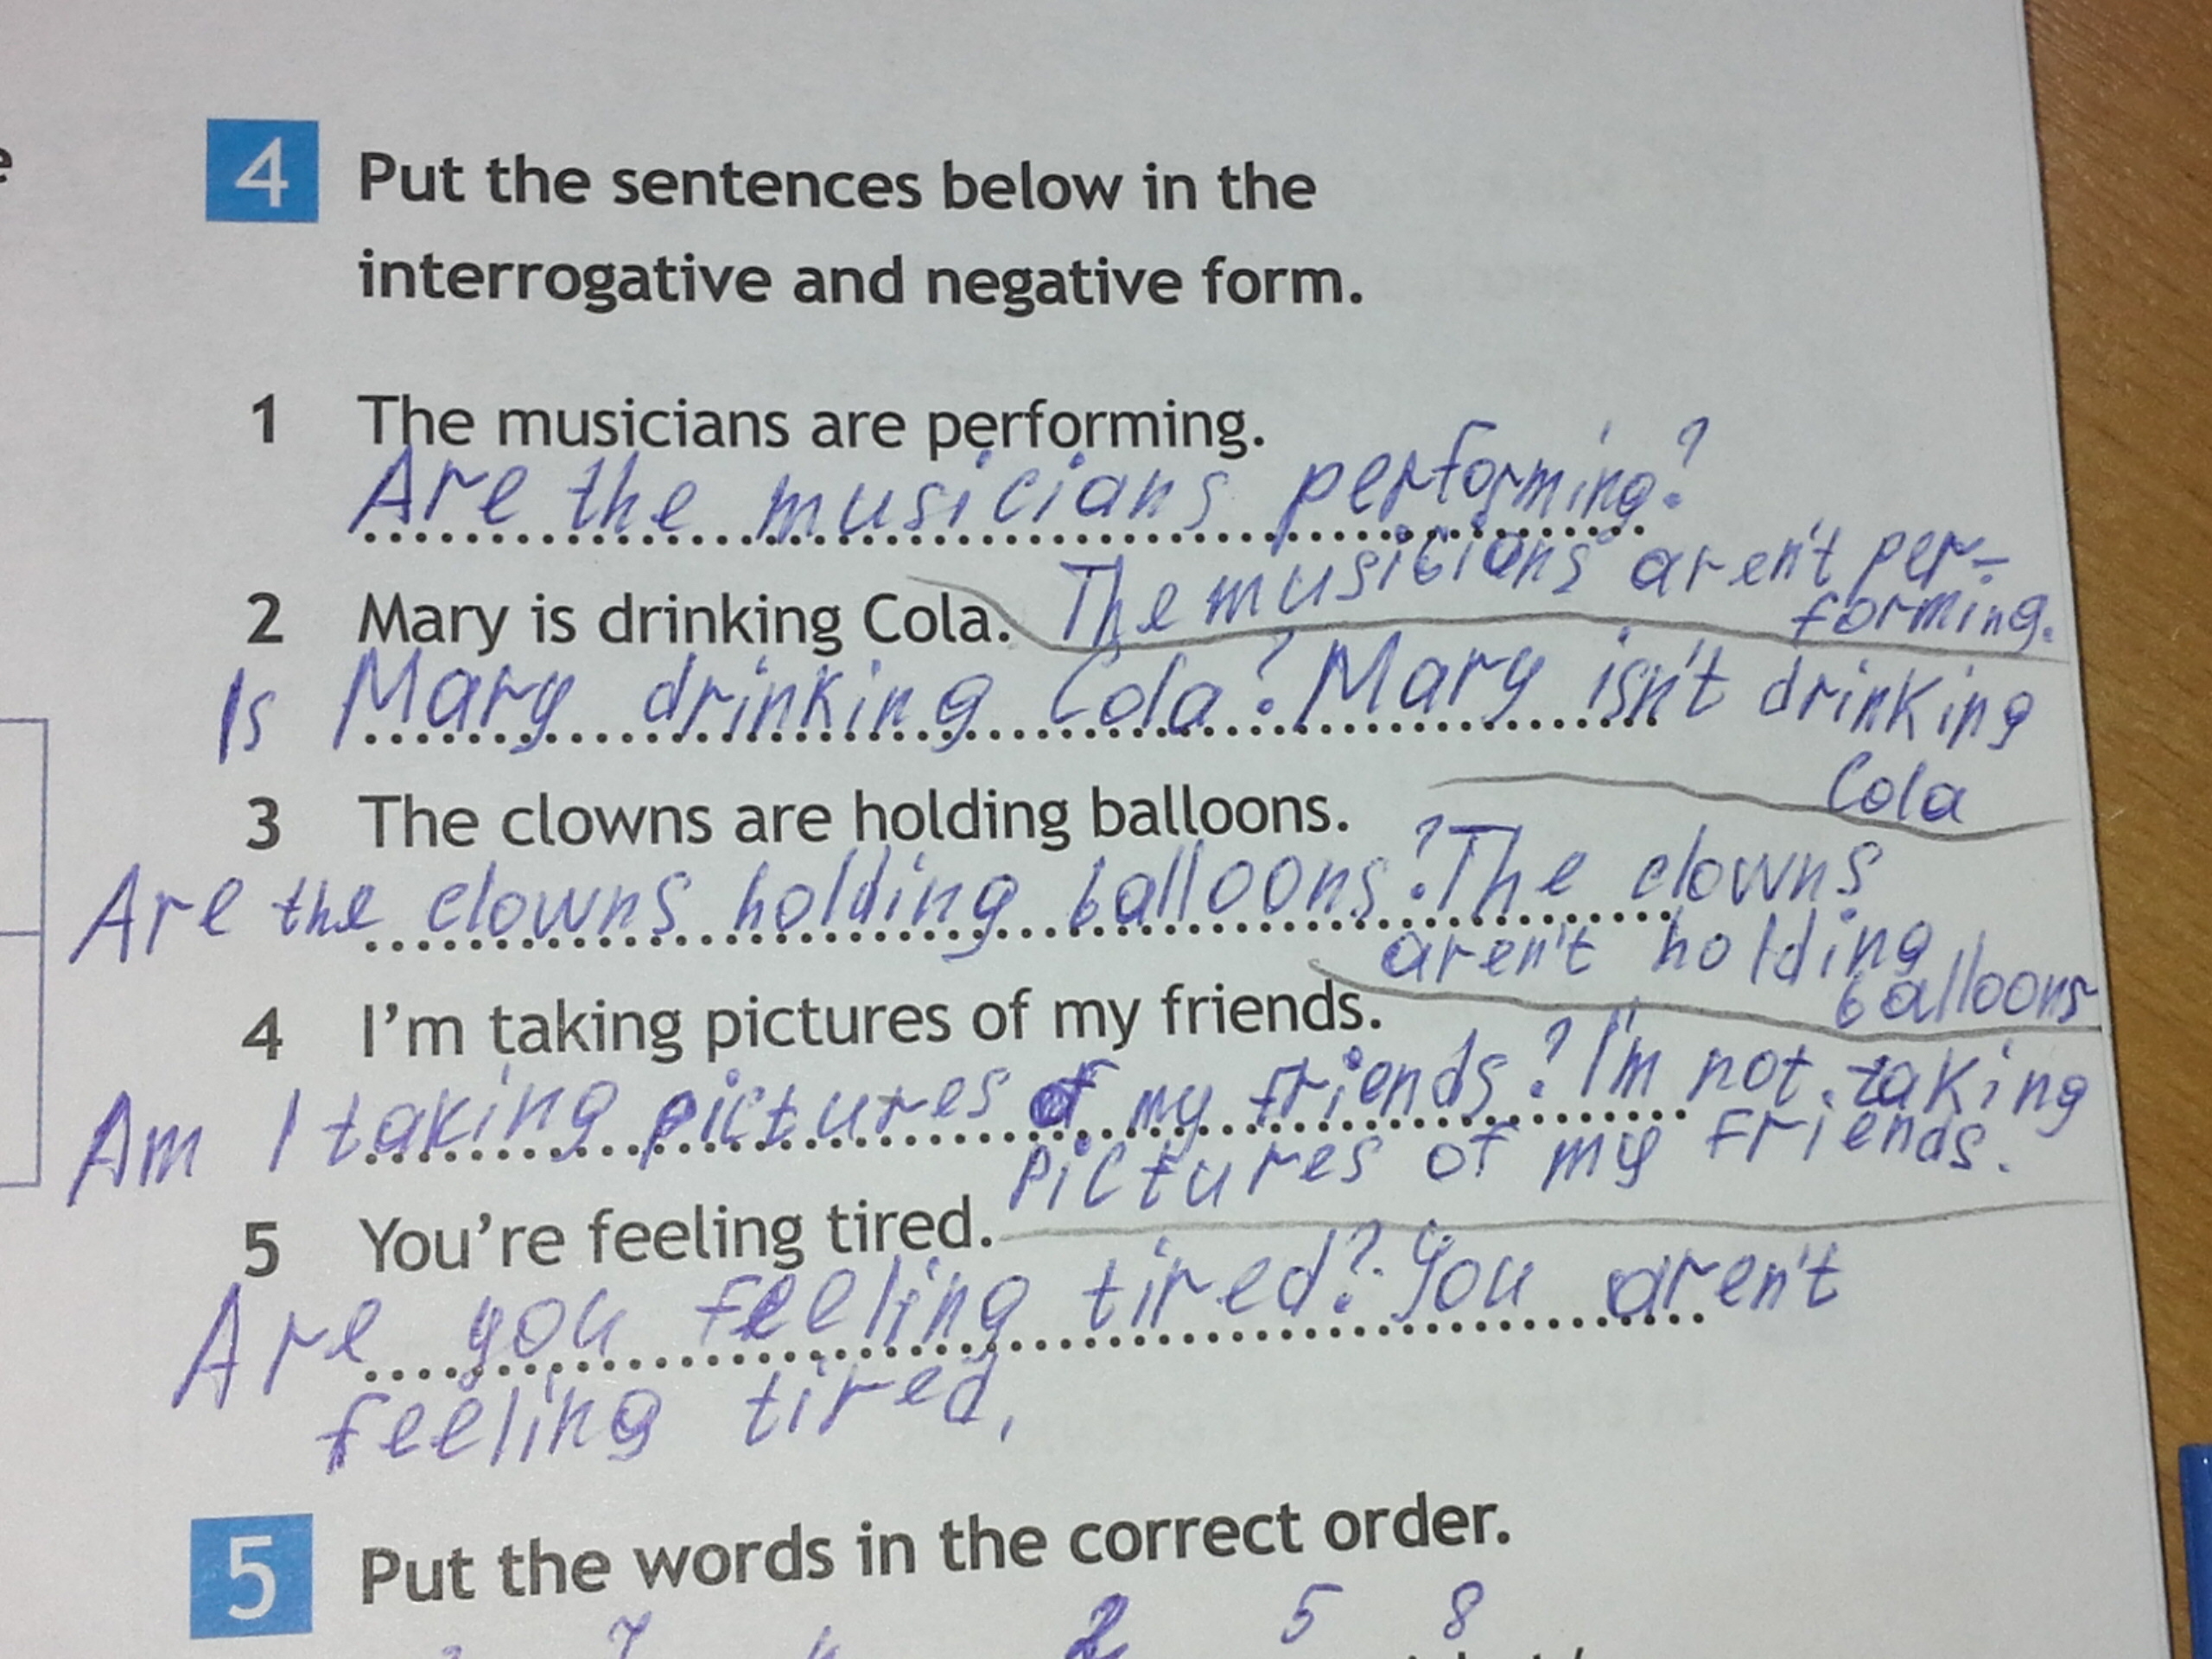 4 Put the sentences below in the
interrogative and negative form.
1 The musicians are performing.
Are the musicians performing?
The musicians aren't per-
forming.
2 Mary is drinking Cola.
Is Mary drinking Cola? Mary isn't drinking
Cola
3 The clowns are holding balloons.
Are the clowns holding balloons? The clowns
aren't holding
balloons
4 I'm taking pictures of my friends.
Am I taking pictures of my friends? I'm not taking
pictures of my friends.
5 You're feeling tired.
Are you feeling tired? You aren't
feeling tired.
5 Put the words in the correct order.
7 2 5 8